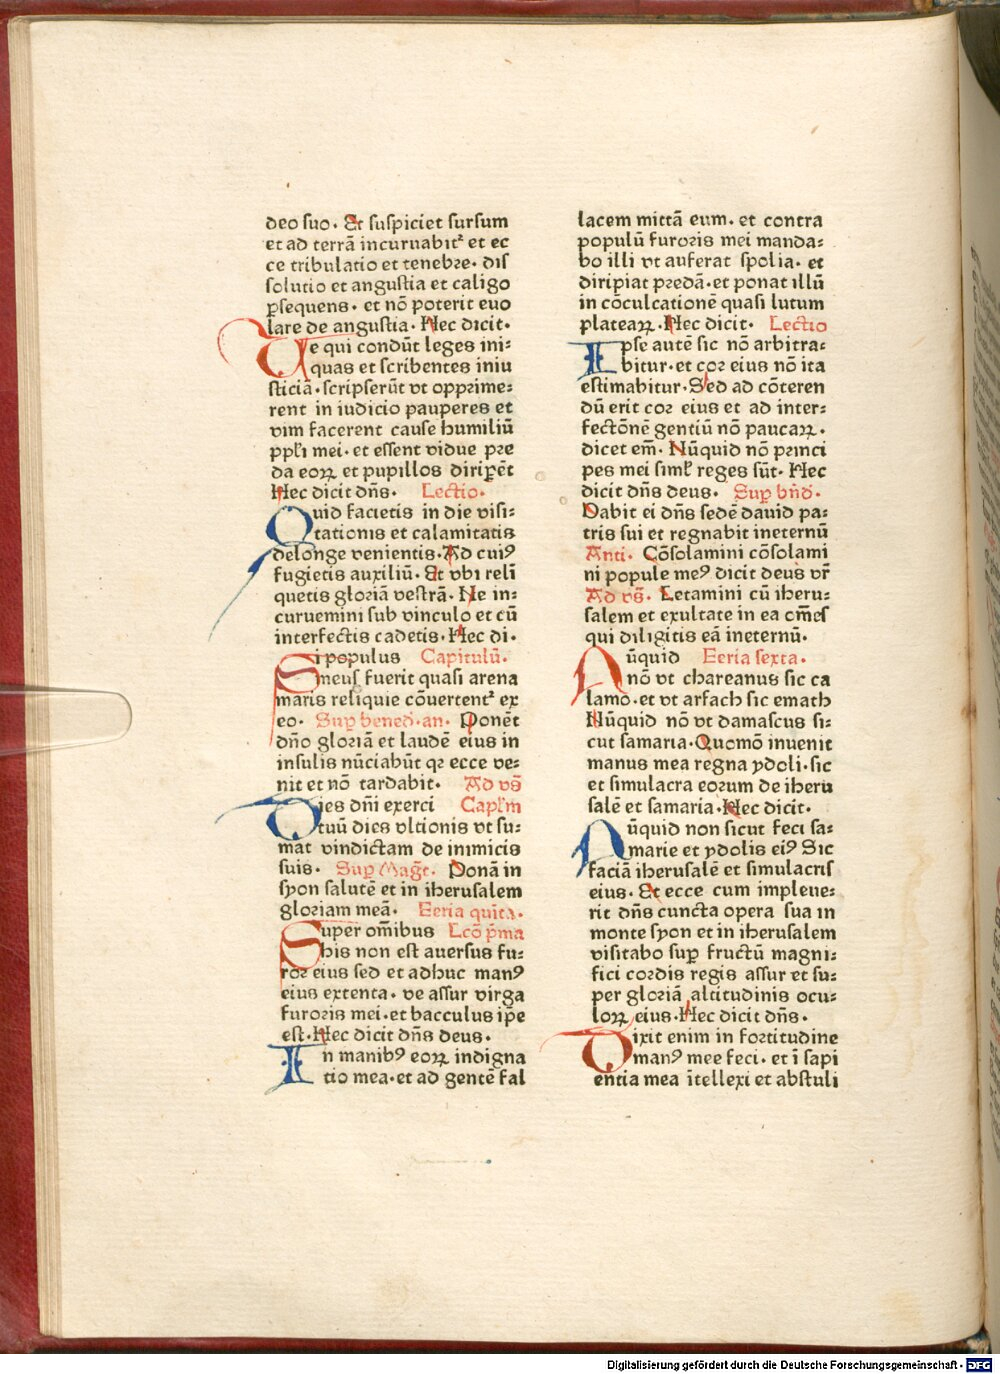 deo suo. Et suspiciet sursum
et ad terrā incuruabitᷣ et ec
ce tribulatio et tenebre. dis
solutio et angustia et caligo
ꝑsequens. et nō poterit euo
lare de angustia. Hec dicit.
Ue qui condūt leges ini⸗
quas et scribentes iniu
sticiā. scripserūt vt opprime⸗
rent in iudicio pauperes et
vim facerent cause humiliū
ppl̄i mei. et essent vidue pre
da eoꝝ et pupillos diriꝑēt
Hec dicit dn̄s. Lectio.
Quid facietis in die visi⸗
tationis et calamitatis
delonge venientis. Ad cuiꝰ
fugietis auxiliū. Et vbi reli
quetis gloriā vestrā. Ne in⸗
curuemini sub vinculo et cū
interfectis cadetis. Hec di.
Si populus Capitulū.
meus fuerit quasi arena
maris reliquie cōuertentᷣ ex
eo. Suꝑ bened. an. Ponēt
dn̄o gloriā et laudē eius in
insulis nūciabūt qꝛ ecce ve⸗
nit et nō tardabit. Ad vs̄
Dies dn̄i exerci Capl̄m
tuū dies vltionis vt su⸗
mat vindictam de inimicis
suis. Suꝑ Maḡt. Ponā in
syon salutē et in iherusalem
gloriam meā. Feria quīta.
Super om̄ibus Lcō pͥma
his non est auersus fu⸗
ror eius sed et adhuc manꝰ
eius extenta. ve assur virga
furoris mei. et bacculus ip̄e
est. Hec dicit dn̄s deus.
In manibꝰ eoꝝ indigna
tio mea. et ad gentē fal
lacem mittā eum. et contra
populū furoris mei manda⸗
bo illi vt auferat spolia. et
diripiat predā. et ponat illū
in cōculcationē quasi lutum
plateaꝝ. Hec dicit. Lectio
Ipse autē sic nō arbitra⸗
bitur. et cor eius nō ita
estimabitur. Sed ad cōteren
dū erit cor eius et ad inter⸗
fectōnē gentiū nō paucaꝝ.
dicet em̄. Nūquid nō princi
pes mei siml̄ reges sūt. Hec
dicit dn̄s deus. Suꝑ bn̄d.
Dabit ei dn̄s sedē dauid pa⸗
tris sui et regnabit ineternū
Anti. Cōsolamini cōsolami
ni popule meꝰ dicit deus vr̄
Ad vs̄. Letamini cū iheru⸗
salem et exultate in ea om̄es
qui diligitis eā ineternū.
Nūquid Feria sexta.
nō vt chareanus sic ca
lamo. et vt arfach sic emath
Nūquid nō vt damascus si⸗
cut samaria. Quomō inuenit
manus mea regna ydoli. sic
et simulacra eorum de iheru
salē et samaria. Hec dicit.
Nūquid non sicut feci sa⸗
marie et ydolis eiꝰ Sic
faciā iherusalē et simulacris
eius. Et ecce cum impleue⸗
rit dn̄s cuncta opera sua in
monte syon et in iherusalem
visitabo suꝑ fructū magni⸗
fici cordis regis assur et su⸗
per gloriā altitudinis ocu⸗
loꝝ eius. Hec dicit dn̄s.
Dixit enim in fortitudine
manꝰ mee feci. et ī sapi
entia mea ītellexi et abstuli
Digitalisierung gefördert durch die Deutsche Forschungsgemeinschaft - DFG